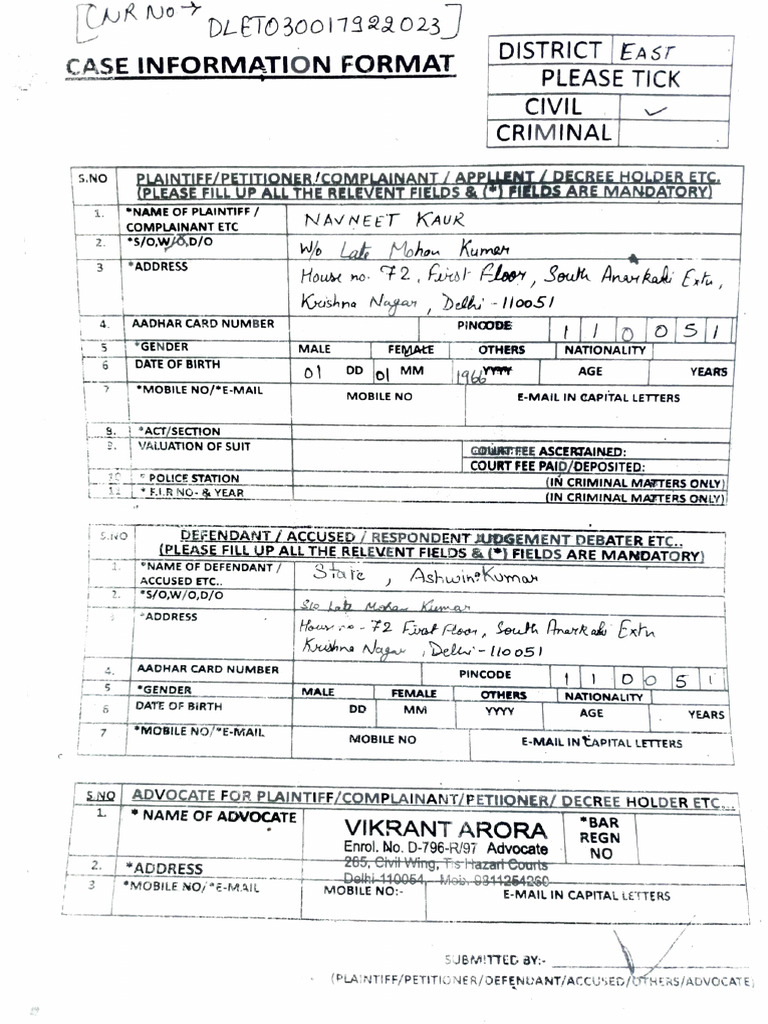 [CNR No → DLET030017922023]
CASE INFORMATION FORMAT
DISTRICT EAST
PLEASE TICK
CIVIL ✓
CRIMINAL
S.NO PLAINTIFF/PETITIONER/COMPLAINANT / APPLLENT / DECREE HOLDER ETC.
(PLEASE FILL UP ALL THE RELEVENT FIELDS & (*) FIELDS ARE MANDATORY)
1. *NAME OF PLAINTIFF / COMPLAINANT ETC NAVNEET KAUR
2. *S/O,W/O,D/O W/o Late Mohan Kumar
3 *ADDRESS House no. 72, First Floor, South Anarkali Extn,
Krishna Nagar, Delhi-110051
4. AADHAR CARD NUMBER PINCODE 1 1 0 0 5 1
5 *GENDER MALE FEMALE OTHERS NATIONALITY
6 DATE OF BIRTH 01 DD 01 MM 1966 YYYY AGE YEARS
7 *MOBILE NO/*E-MAIL MOBILE NO E-MAIL IN CAPITAL LETTERS
8. *ACT/SECTION
9. VALUATION OF SUIT COURT FEE ASCERTAINED:
COURT FEE PAID/DEPOSITED:
10 * POLICE STATION (IN CRIMINAL MATTERS ONLY)
11 * F.I.R NO- & YEAR (IN CRIMINAL MATTERS ONLY)
S.NO DEFENDANT / ACCUSED / RESPONDENT JUDGEMENT DEBATER ETC..
(PLEASE FILL UP ALL THE RELEVENT FIELDS & (*) FIELDS ARE MANDATORY)
1. *NAME OF DEFENDANT / ACCUSED ETC.. State, Ashwin Kumar
2. *S/O,W/O,D/O S/o Late Mohan Kumar
3 *ADDRESS House no-72 First Floor, South Anarkali Extn
Krishna Nagar, Delhi-110051
4. AADHAR CARD NUMBER PINCODE 1 1 0 0 5 1
5 *GENDER MALE FEMALE OTHERS NATIONALITY
6 DATE OF BIRTH DD MM YYYY AGE YEARS
7 *MOBILE NO/*E-MAIL MOBILE NO E-MAIL IN CAPITAL LETTERS
S.NO ADVOCATE FOR PLAINTIFF/COMPLAINANT/PETIIONER/ DECREE HOLDER ETC...
1. * NAME OF ADVOCATE VIKRANT ARORA *BAR REGN NO
Enrol. No. D-796-R/97 Advocate
2. *ADDRESS 265, Civil Wing, Tis Hazari Courts
Delhi-110054, Mob. 9811254260
3 *MOBILE NO/*E-MAIL MOBILE NO:- E-MAIL IN CAPITAL LETTERS
SUBMITTED BY:-
(PLAINTIFF/PETITIONER/DEFENDANT/ACCUSED/OTHERS/ADVOCATE)